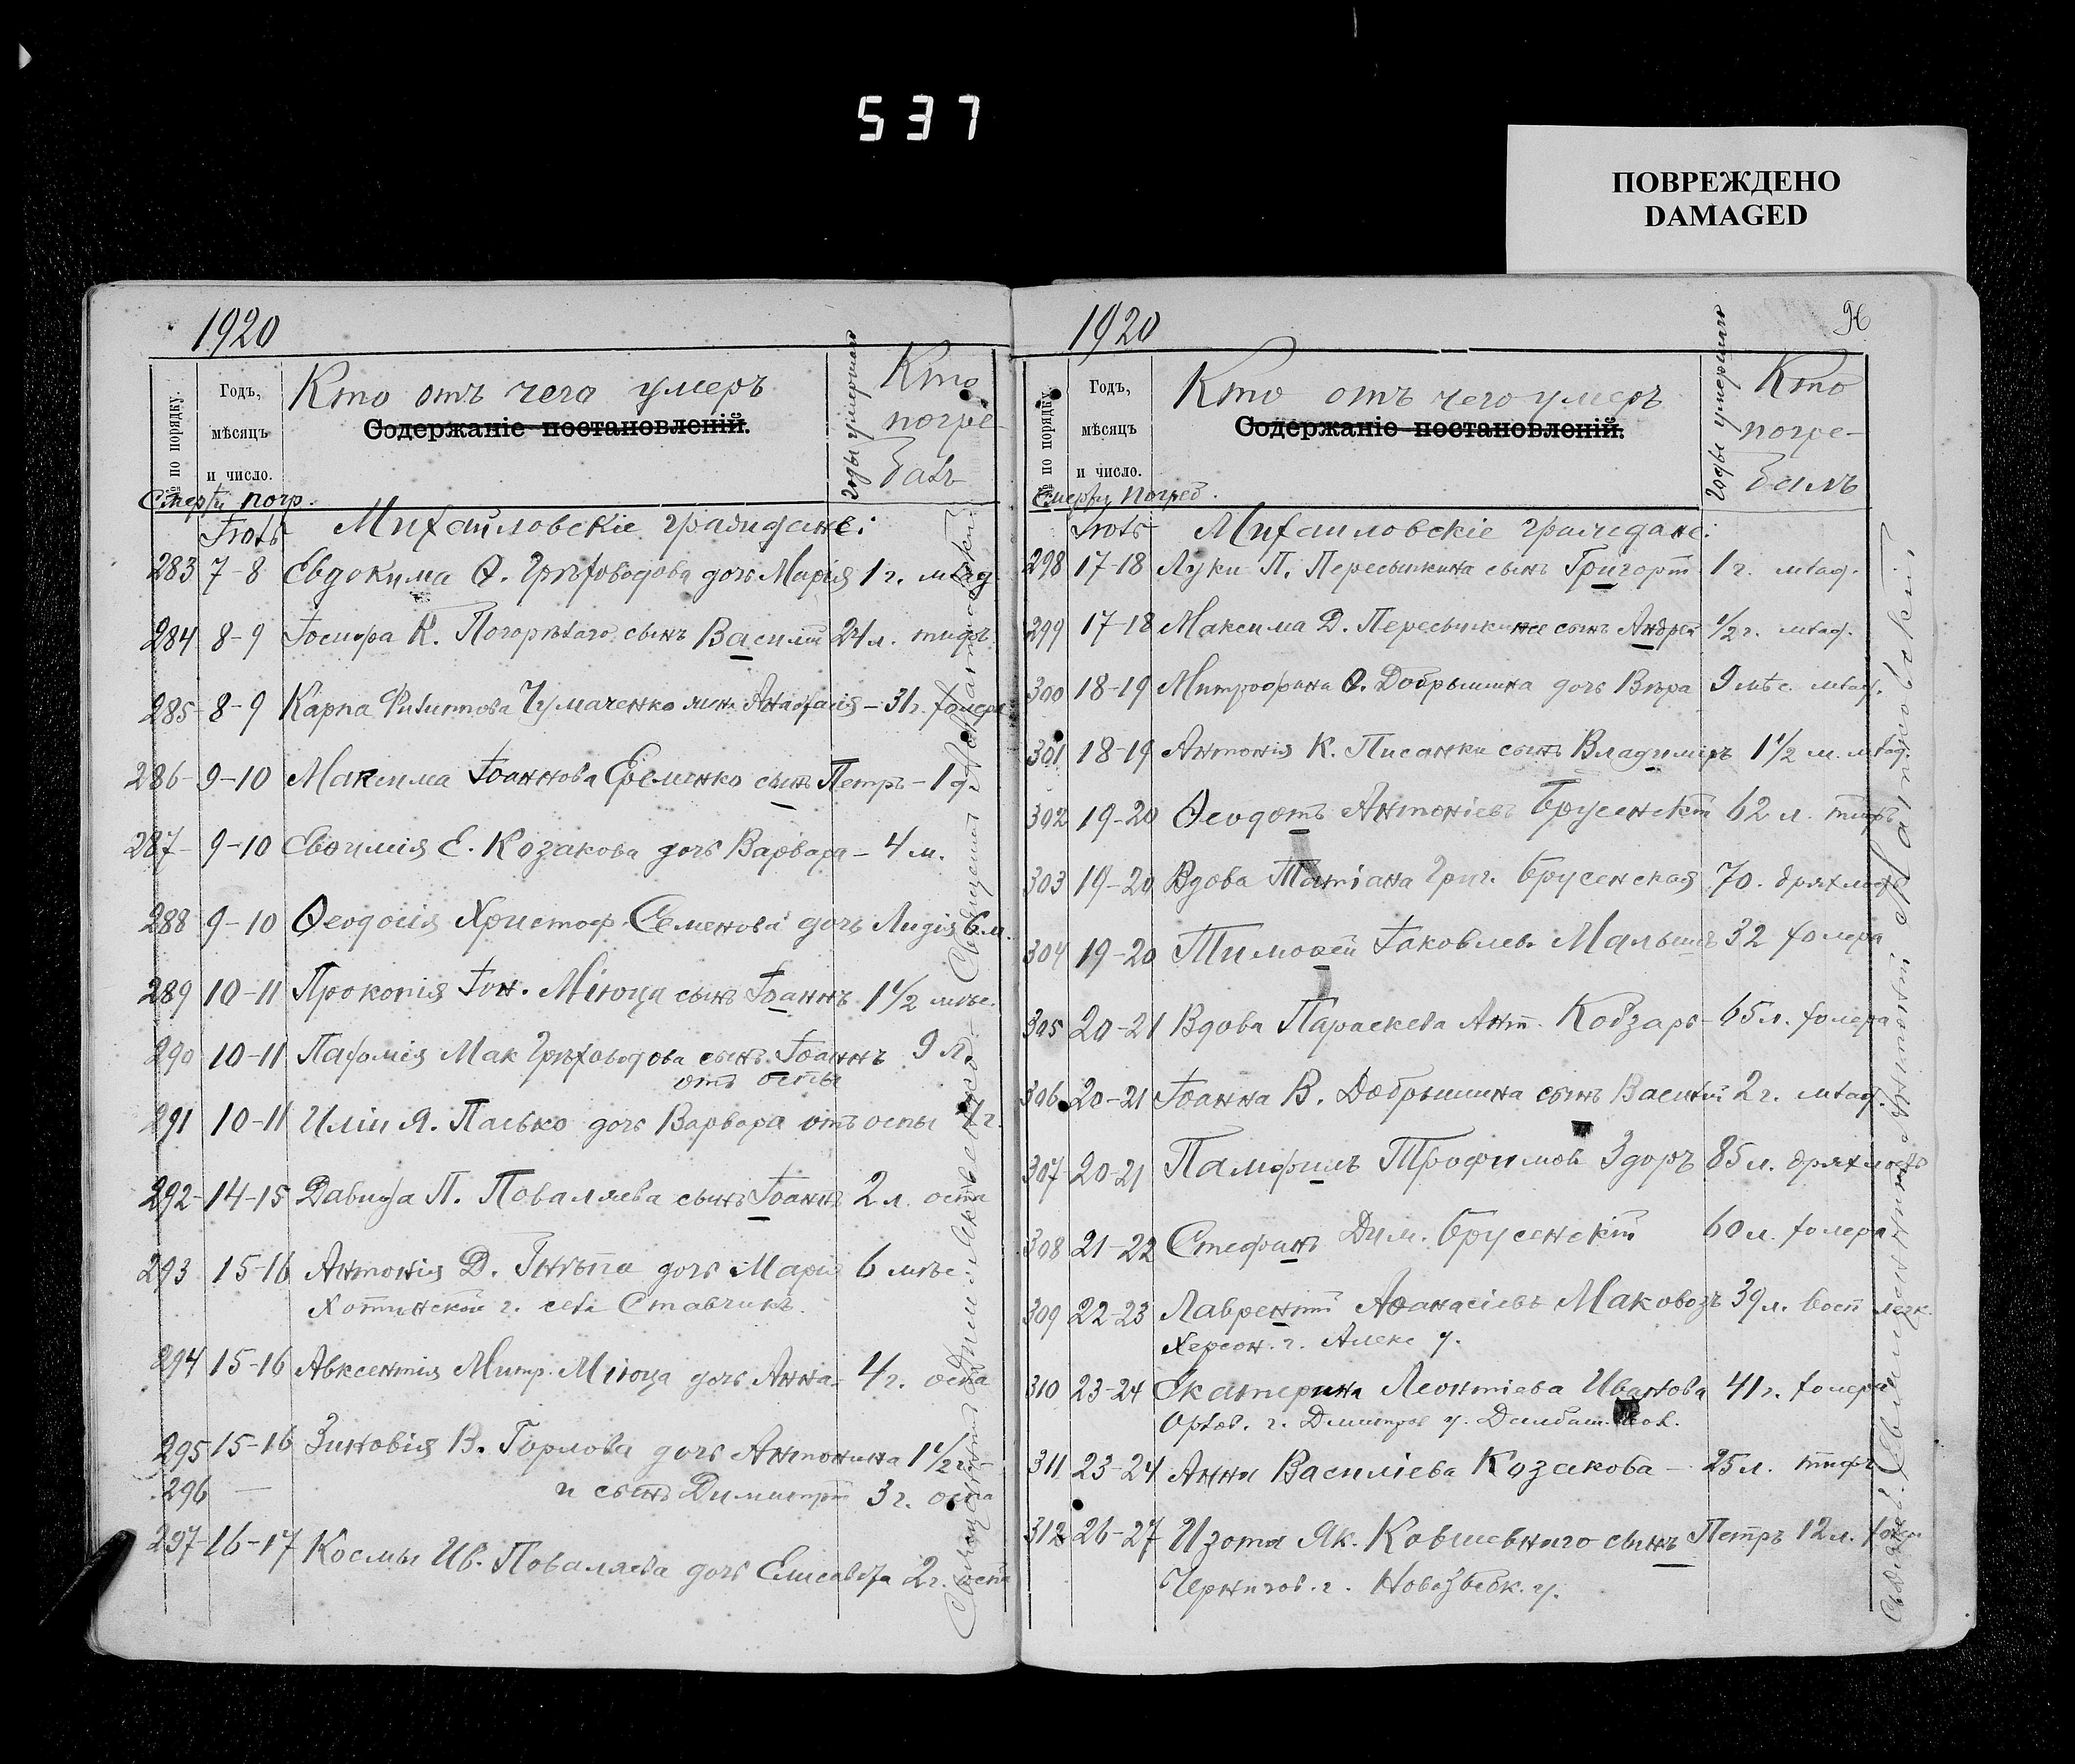 537
ПОВРЕЖДЕНО
DAMAGED
1920
№ по порядку.
Годъ,
мѣсяцъ
и число.
Смерти погр.
Кто отъ чего умеръ
Содержаніе постановленій.
годы умершаго
Кто
погре-
балъ
Іюль Михаиловскіе граждане:
283 7-8 Евдокима Ѳ. Грѣховодова дочь Марія 1 г. млад.
284 8-9 Іосифа К. Погорѣлаго сынъ Василій 24 л. тифъ
285 8-9 Карпа Филиппова Чумаченко жена Анастасія - 31 г. холера
286 9-10 Максима Іоаннова Еременко сынъ Петръ - 1 д.
287 9-10 Евѳимія Е. Козакова дочь Варвара - 4 м.
288 9-10 Ѳеодосія Христоф. Семенова дочь Лидія 6 м.
289 10-11 Прокопія Іон. Міюца сынъ Іоаннъ 1 1/2 мѣс.
290 10-11 Пахомія Мак Грѣховодова сынъ Іоаннъ 9 л.
отъ оспы
291 10-11 Иліи Я. Палько дочь Варвара отъ оспы
292 14-15 Давида П. Поваляева сынъ Іоаннъ 2 л. оспа
293 15-16 Антонія Д. Гнѣпа дочь Марія 6 мѣс.
Хотинской г. села Ставчикъ.
294 15-16 Авксентія Митр. Міюца дочь Анна - 4 г. оспа
295 15-16 Зиновія В. Горлова дочь Антонина 1 1/2 г.
296 — и сынъ Димитрій 3 г. оспа
297 16-17 Космы Ив. Поваляева дочь Елисавета 2 г. оспа
Священникъ Антоній Мартиновскій
1920
96
№ по порядку
Годъ,
мѣсяцъ
и число.
Смерти Погреб.
Кто отъ чего умеръ
Содержаніе постановленій.
годы умершаго
Кто
погре-
балъ
Іюль Михаиловскіе граждане:
298 17-18 Луки П. Пересыпкина сынъ Григорій 1 г. млад.
299 17-18 Максима Д. Пересыпкина сынъ Андрей 1/2 г. млад.
300 18-19 Митрофана Ѳ. Добрышина дочь Вѣра 9 мѣс. млад.
301 18-19 Антонія К. Писанки сынъ Владиміръ 1 1/2 м. млад.
302 19-20 Ѳеодотъ Антоніевъ Брусенскій 62 л. тифъ
303 19-20 Вдова Татіана Григ. Брусенская 70. дряхлость
304 19-20 Тимоѳей Іаковлев. Малышъ 32 холера
305 20-21 Вдова Параскева Ант. Кобзарь - 65 л. холера
306 20-21 Іоанна В. Добрышина сынъ Василій 2 г. млад.
307 20-21 Памфилъ Трофимов Здоръ 85 л. дряхлость
308 21-22 Стефанъ Дим. Брусенскій 60 л. холера
309 22-23 Лаврентій Аѳанасіевъ Маковозъ 39 л. восп легк.
Херсон. г. Алекс у.
310 23-24 Екатерина Леонтіева Иванова 41 г. холера
Орлов. г. Дмитров у.
311 23-24 Анна Василіева Козакова - 25 л. тифъ
312 26-27 Изота Як. Ковшевнаго сынъ Петръ 12 л. холер
Чернигов. г. Новозыбк. у.
Священникъ Антоній Мартиновскій